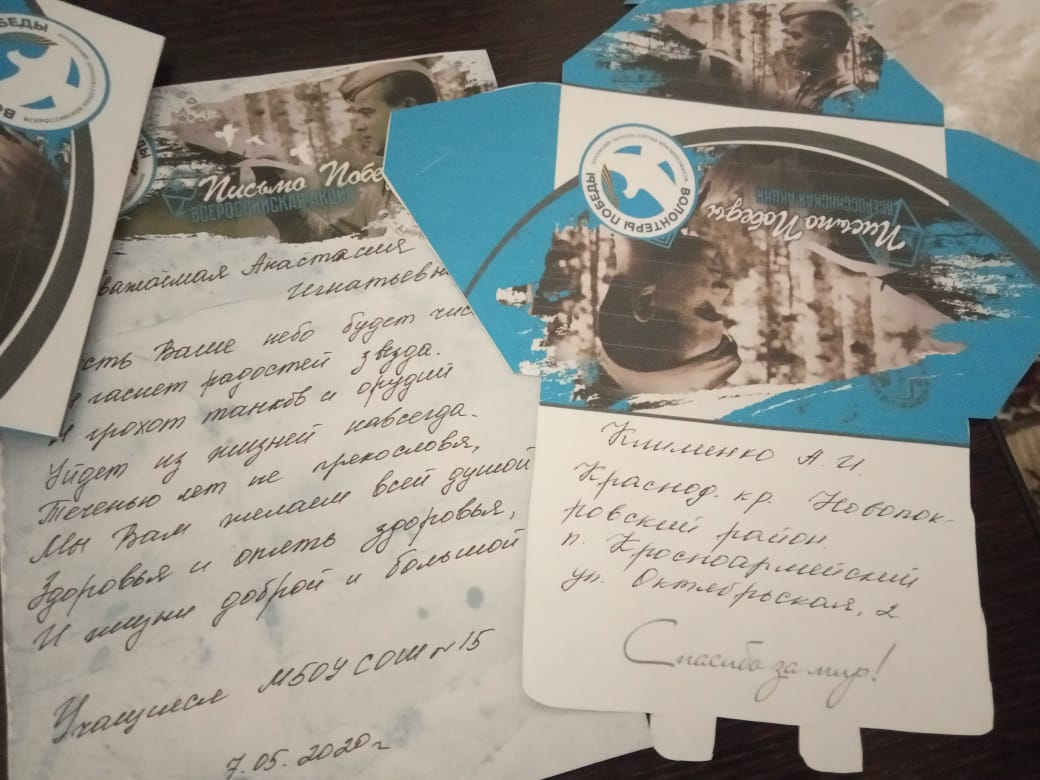 ОБЕДЫ
Письмо Побе
ВСЕРОССИЙСКАЯ АКЦИЯ
важаймая Анастасия
Игнатьевн
сть Ваше небо будет чис
гаснет радостей звезда.
И грохот танков и орудий
Уйдет из жизней навсегда.
Теченью лет не прекословья,
Мы Вам желаем всей душой
Здоровья и опять здоровья,
И жизни доброй и большой
Учащиеся МБОУ СОШ №15
7.05.2020г
ВОЛОНТЕРЫ ПОБЕДЫ
Письмо Победы
ВСЕРОССИЙСКАЯ АКЦИЯ
Клименко А.И.
Краснод. кр. Новопок-
ровский район.
п. Кросноармейский
ул. Октябрьская, 2
Спасибо за мир!